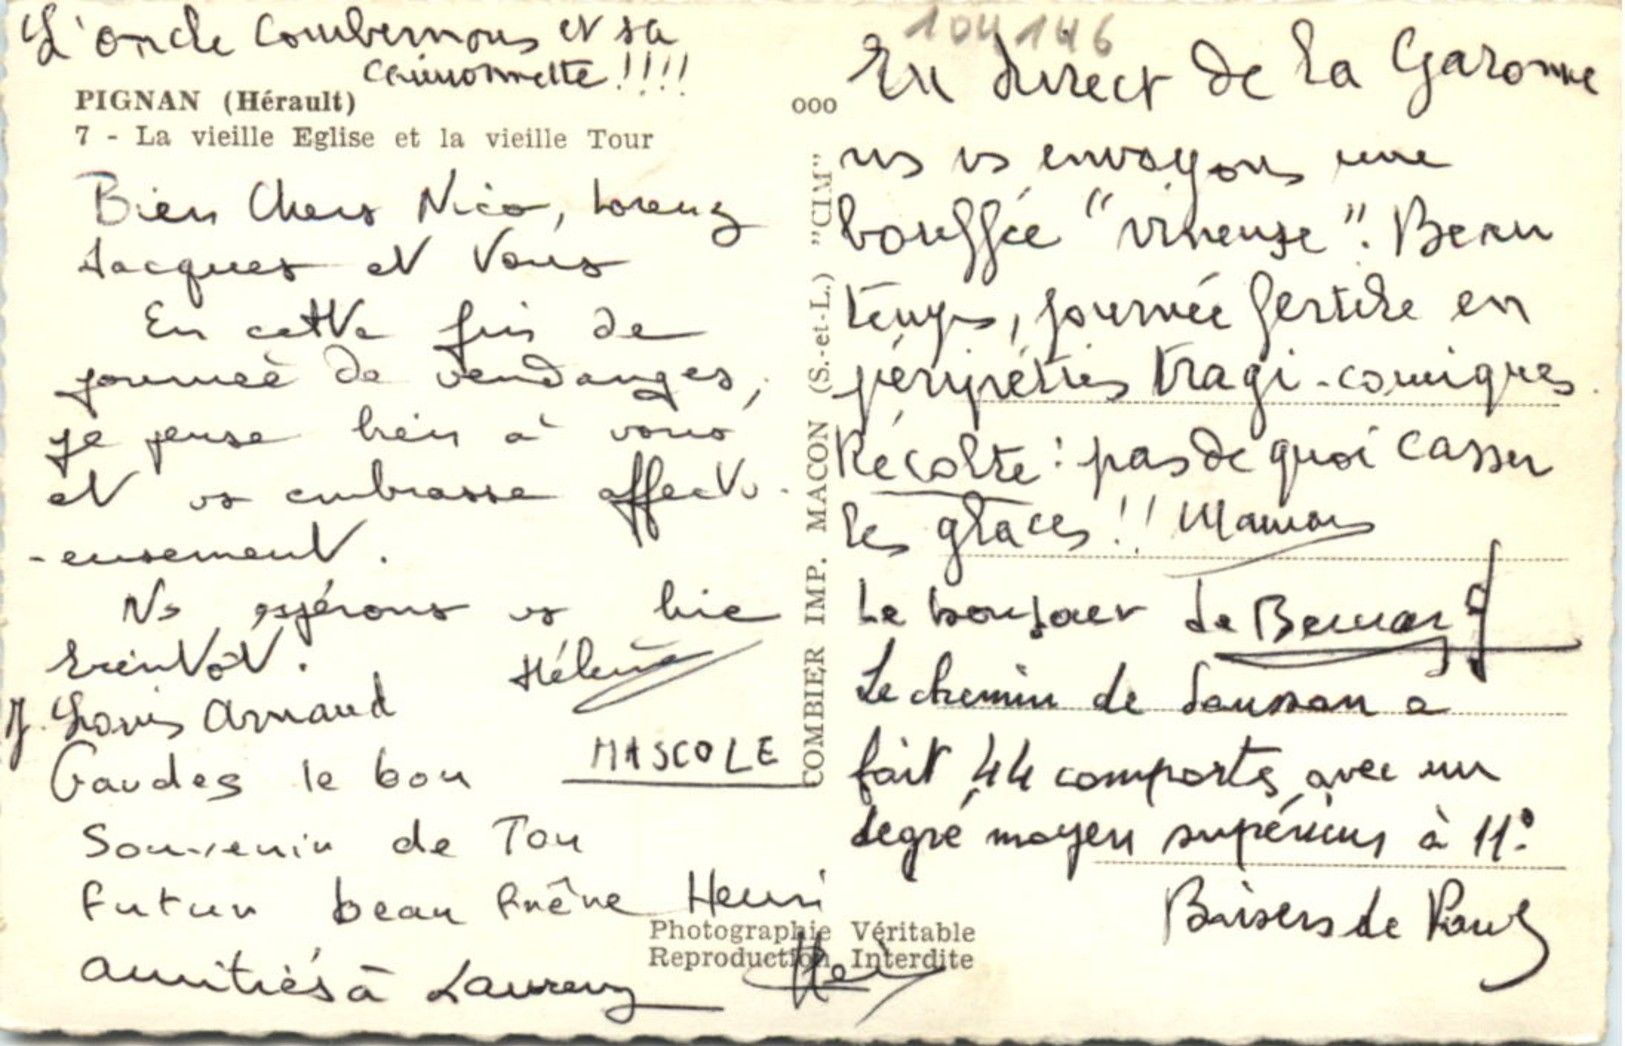 L'oncle Combernous et sa
camionnette !!!!
PIGNAN (Hérault)
7 - La vieille Eglise et la vieille Tour
Bien Chers Nico, Lorenz
Jacques et Vous
En cette fin de
journeé de vendanges,
je pense bien à vous
et vs embrasse affectu-
-eusement.
Ns espérons vs lire
bientôt.
Hélène
Louis Arnaud
MASCOLE
Gardes le bon
Souvenir de Ton
futur beau frêre Henri
amitiés à Laurenz
104146
En direct de la Garonne
ns vs envoyons une
bouffée "vineuse". Beau
temps, journée fertile en
péripéties tragi-comiques
Récolte : pas de quoi casser
les glaces !! Maman
Le bonjour de Bernard
Le chemin de Saussan a
fait 44 comportes avec un
degré moyen supérieur à 11°.
Baisers de Paul
ooo
COMBIER IMP. MACON (S.-et-L.) "CIM"
Photographie Véritable
Reproduction Interdite